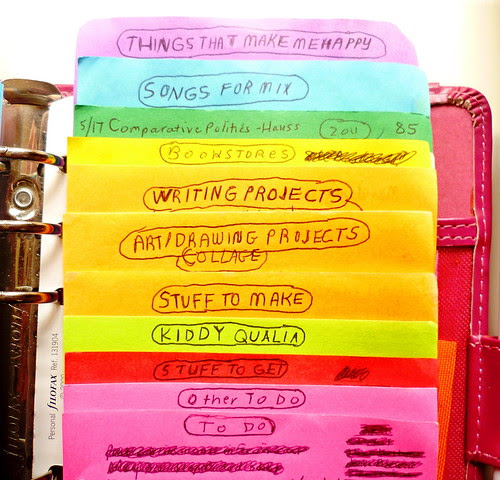 THINGS THAT MAKE ME HAPPY
SONGS FOR MIX
5/17 Comparative Politics - Hauss 2011, 85
BOOKSTORES
WRITING PROJECTS
ART/DRAWING PROJECTS
COLLAGE
STUFF TO MAKE
KIDDY QUALIA
STUFF TO GET
Other To Do
TO DO
Personal fILOFAX Ref. 131904